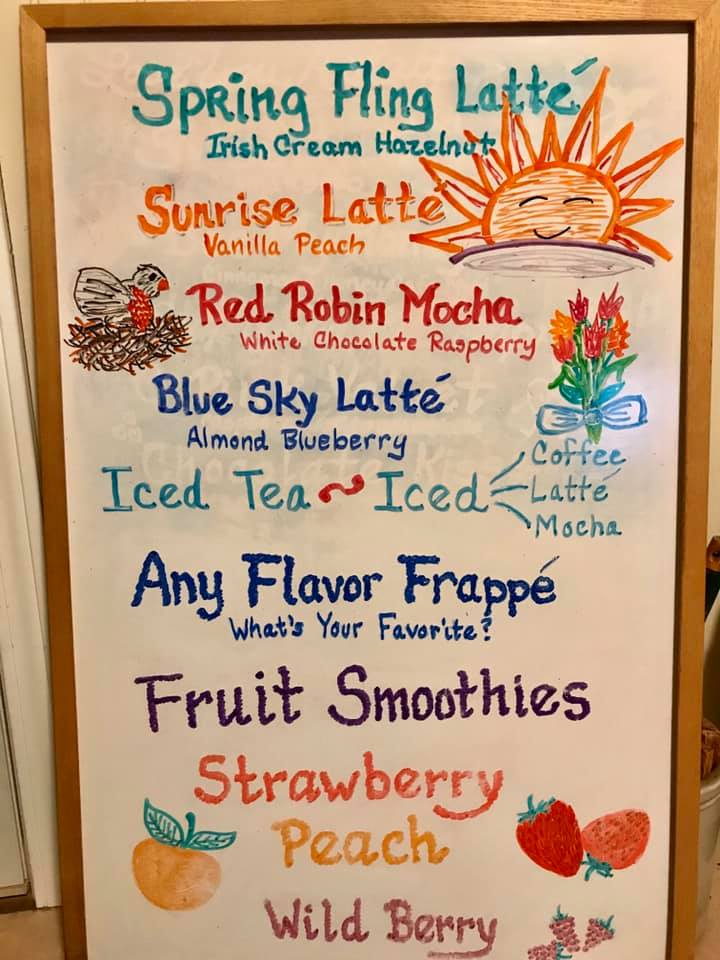 Spring Fling Latté
Irish Cream Hazelnut
Sunrise Latté
Vanilla Peach
Red Robin Mocha
White Chocolate Raspberry
Blue Sky Latté
Almond Blueberry
Iced Tea ~ Iced
Coffee
Latté
Mocha
Any Flavor Frappé
What's Your Favorite?
Fruit Smoothies
Strawberry
Peach
Wild Berry